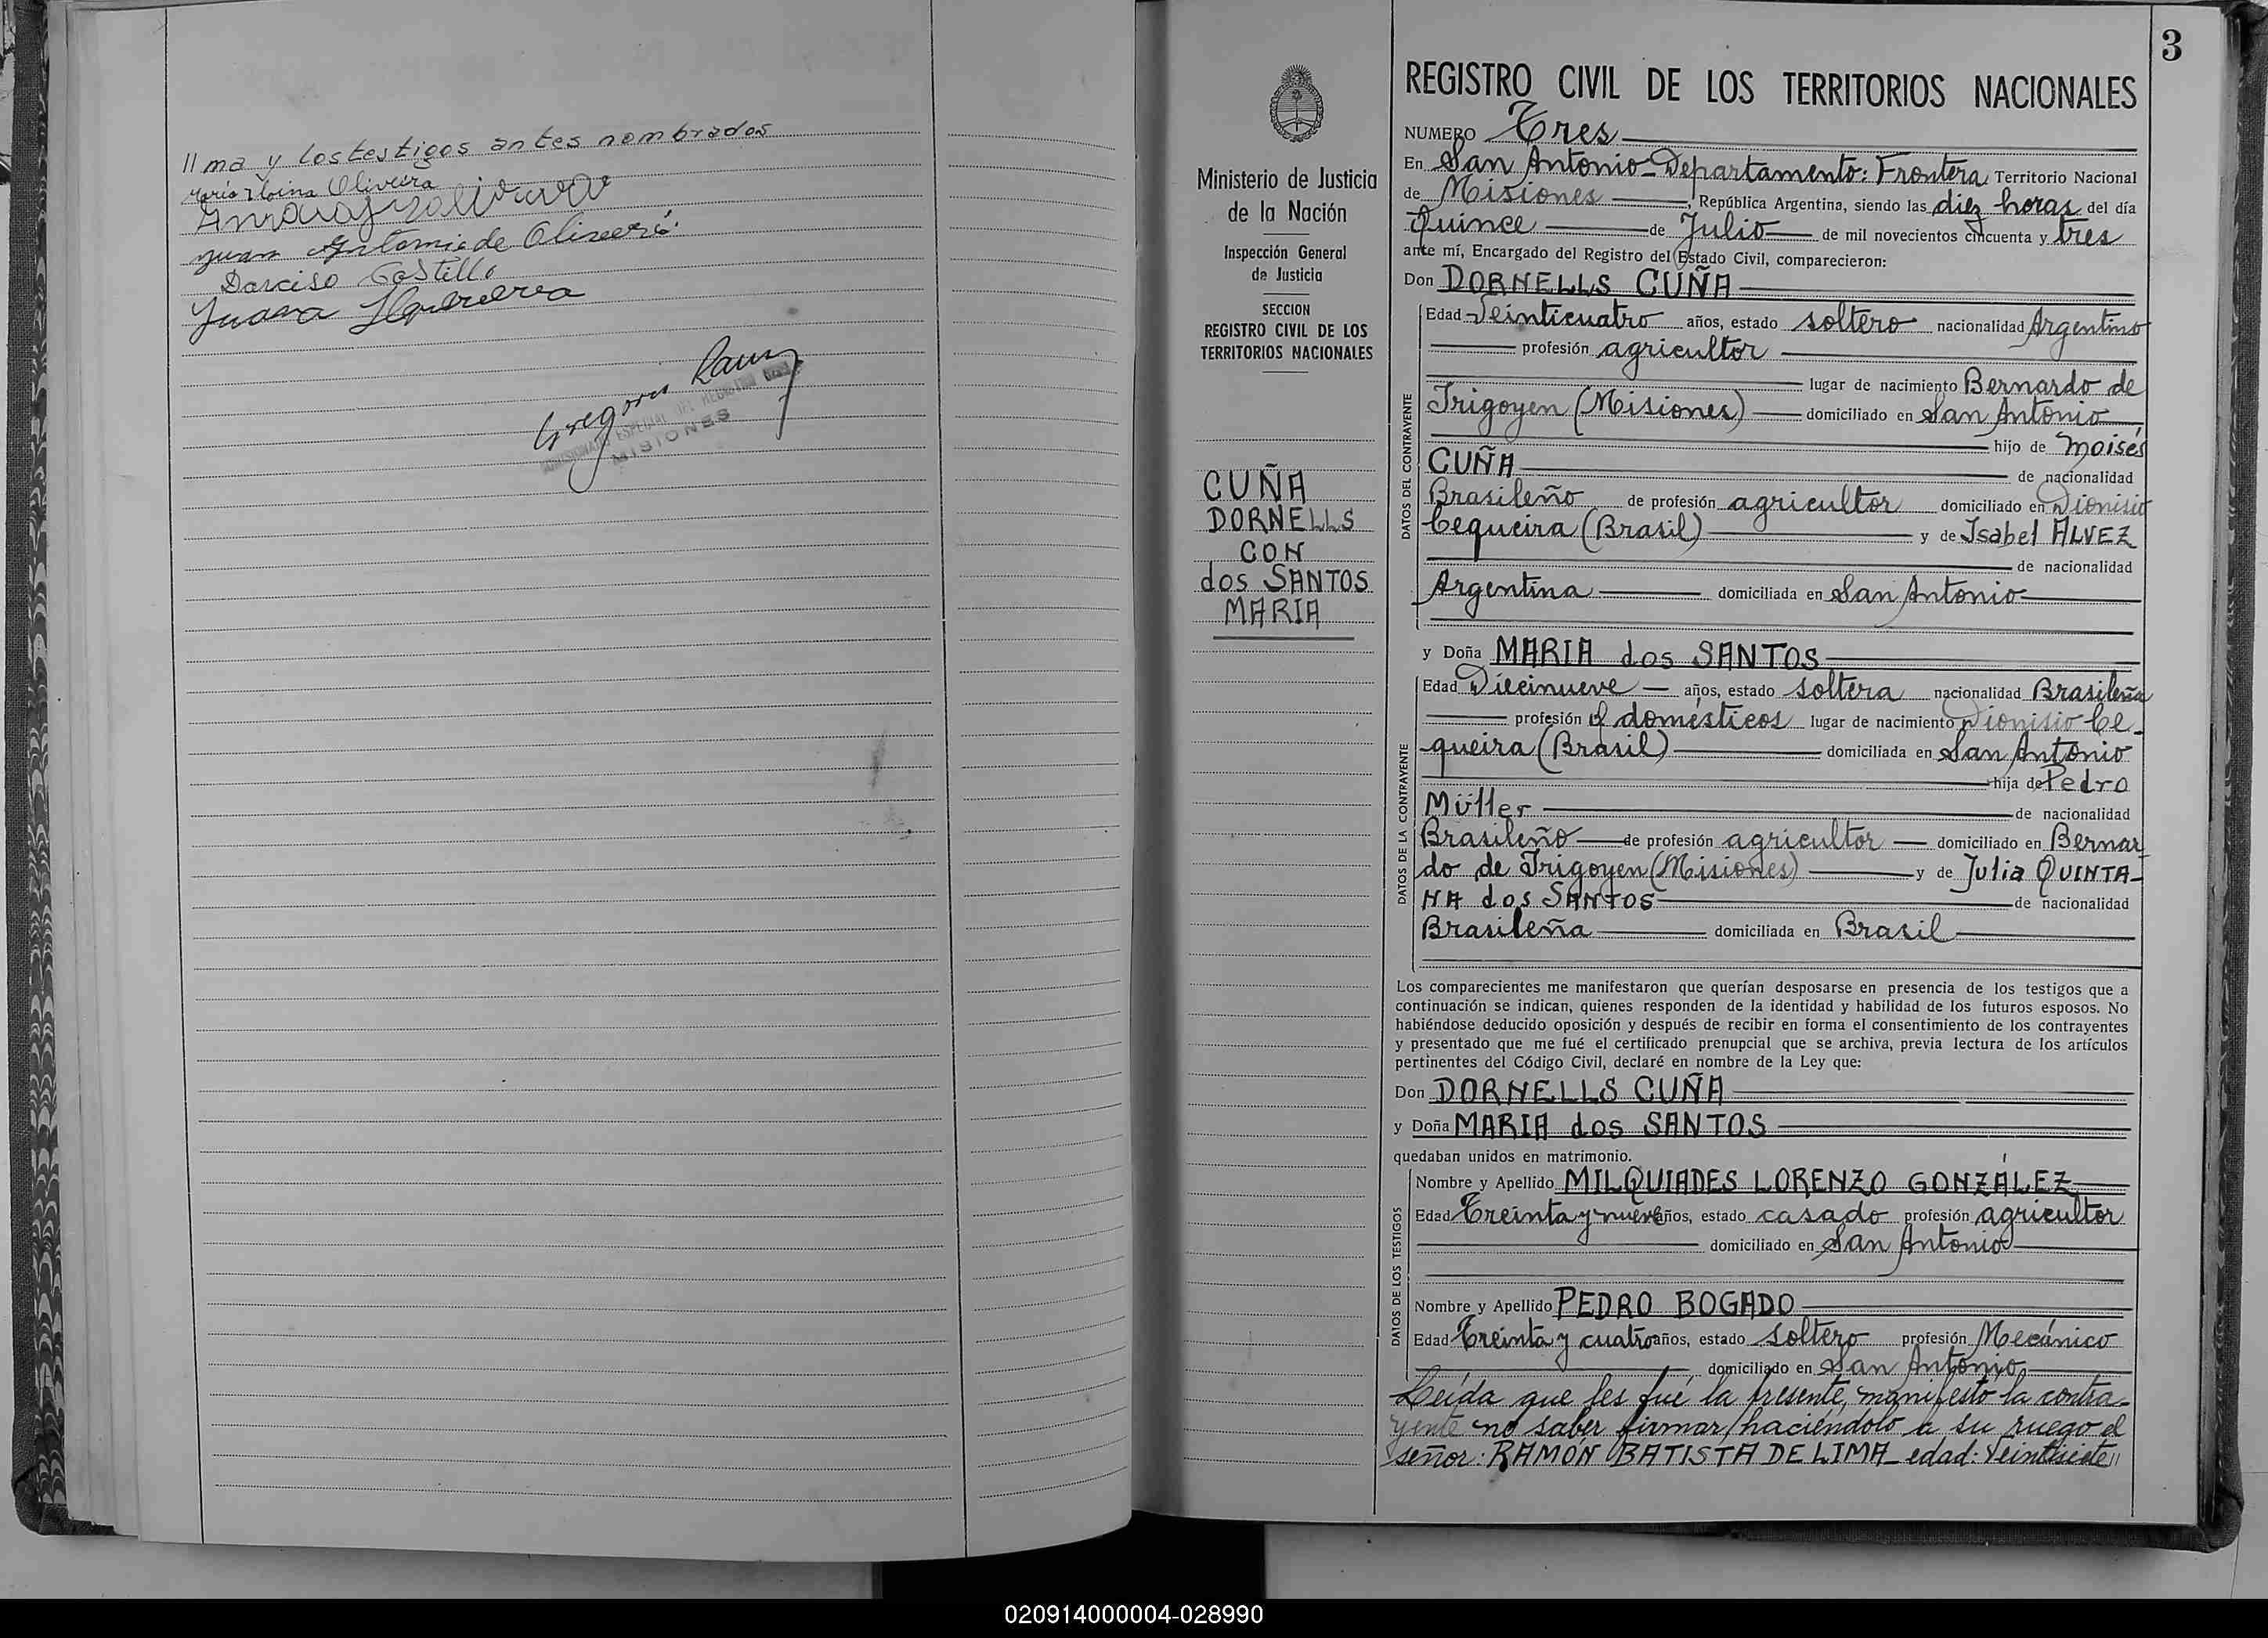 //ma y los testigos antes nombrados
Maria Oliveira
Juan Antonio de Olivera
Darciso Castillo
Juana
Gregorio
MISIONES
Ministerio de Justicia
de la Nación
Inspección General
de Justicia
SECCION
REGISTRO CIVIL DE LOS
TERRITORIOS NACIONALES
CUÑA
DORNELLS
CON
dos SANTOS
MARIA
3
REGISTRO CIVIL DE LOS TERRITORIOS NACIONALES
NUMERO Tres
En San Antonio - Departamento: Frontera Territorio Nacional
de Misiones, República Argentina, siendo las diez horas del día
Quince de Julio de mil novecientos cincuenta y tres
ante mí, Encargado del Registro del Estado Civil, comparecieron:
Don DORNELLS CUÑA
DATOS DEL CONTRAYENTE
Edad Veinticuatro años, estado soltero nacionalidad Argentino
profesión agricultor
lugar de nacimiento Bernardo de
Irigoyen (Misiones) domiciliado en San Antonio
hijo de Moisés
CUÑA de nacionalidad
Brasileño de profesión agricultor domiciliado en Dionisio
Cequeira (Brasil) y de Isabel ALVEZ
de nacionalidad
Argentina domiciliada en San Antonio
y Doña MARIA dos SANTOS
DATOS DE LA CONTRAYENTE
Edad Diecinueve años, estado soltera nacionalidad Brasileña
profesión q/ domésticos lugar de nacimiento Dionisio Ce-
queira (Brasil) domiciliada en San Antonio
hija de Pedro
Müller de nacionalidad
Brasileño de profesión agricultor domiciliado en Bernar
do de Irigoyen (Misiones) y de Julia QUINTA-
NA dos SANTOS de nacionalidad
Brasileña domiciliada en Brasil
Los comparecientes me manifestaron que querían desposarse en presencia de los testigos que a
continuación se indican, quienes responden de la identidad y habilidad de los futuros esposos. No
habiéndose deducido oposición y después de recibir en forma el consentimiento de los contrayentes
y presentado que me fué el certificado prenupcial que se archiva, previa lectura de los artículos
pertinentes del Código Civil, declaré en nombre de la Ley que:
Don DORNELLS CUÑA
y Doña MARIA dos SANTOS
quedaban unidos en matrimonio.
DATOS DE LOS TESTIGOS
Nombre y Apellido MILQUIADES LORENZO GONZÁLEZ
Edad Treinta y nueve años, estado casado profesión agricultor
domiciliado en San Antonio
Nombre y Apellido PEDRO BOGADO
Edad Treinta y cuatro años, estado soltero profesión Mecánico
domiciliado en San Antonio
Leída que les fué la presente, manifestó la contra-
yente no saber firmar, haciéndolo a su ruego el
señor: RAMÓN BATISTA DE LIMA - edad: Veintisiete//
020914000004-028990